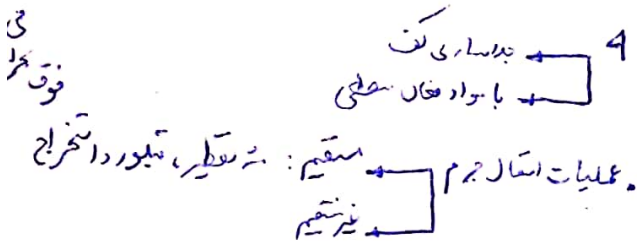 4 جداسازی کف
با مواد فعال سطحی
فوق
عملیات انتقال جرم مستقیم: تقطیر، تبلور و استخراج
غیرمستقیم